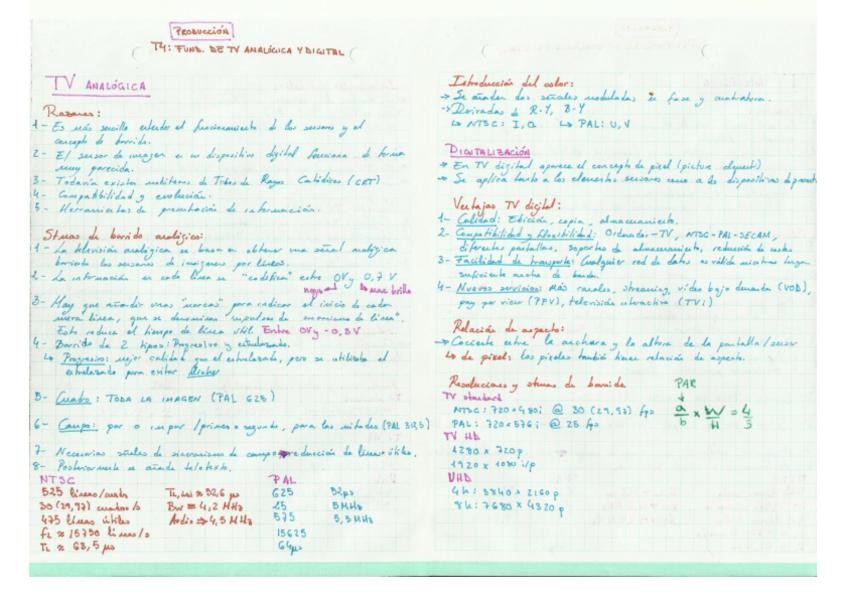 PRODUCCIÓN
T4: FUND. DE TV ANALÓGICA Y DIGITAL
TV ANALÓGICA
Razones:
1- Es más sencillo entender el funcionamiento de los sensores y el
concepto de barrido.
2- El sensor de imagen en un dispositivo digital funciona de forma
muy parecida.
3- Todavía existen monitores de Tubos de Rayos Catódicos (CRT)
4- Compatibilidad y evolución.
5- Herramientas de presentación de información.
Stmas de barrido analógico:
1- La televisión analógica se basa en obtener una señal analógica
barriendo los sensores de imágenes por líneas.
2- La información en cada línea se "codifica" entre 0V y 0,7 V
negro max brillo
3- Hay que añadir unas "marcas" para indicar el inicio de cada
nueva línea, que se denominan "impulsos de sincronismo de línea".
Esto reduce el tiempo de línea útil. Entre 0V y -0,3V
4- Barrido de 2 tipos: Progresivo y entrelazado.
↳ Progresivo: mejor calidad que el entrelazado, pero se utilizaba el
entrelazado para evitar flicker
5- Cuadro: TODA LA IMAGEN (PAL 625)
6- Campo: par o impar / primero o segundo, para las mitades (PAL 312,5)
7- Necesarias señales de sincronismo de campo → reducción de líneas útiles.
8- Posteriormente se añade teletexto.
NTSC PAL
525 líneas/cuadro TL,útil ≈ 52,6 µs 625 52µs
30 (29,97) cuadros/s BW = 4,2 MHz 25 5MHz
475 líneas útiles Audio ⇒ 4,5 MHz 575 5,5 MHz
fL ≈ 15750 líneas/s 15625
TL ≈ 63,5 µs 64µs
Introducción del color:
→ Se añaden dos señales moduladas en fase y cuadratura.
→ Derivadas de R-Y, B-Y
↳ NTSC: I, Q ↳ PAL: U, V
DIGITALIZACIÓN
→ En TV digital aparece el concepto de pixel (picture element)
→ Se aplica tanto a los elementos sensores como a los dispositivos de present
Ventajas TV digital:
1- Calidad: Edición, copia, almacenamiento.
2- Compatibilidad y flexibilidad: Ordenador-TV, NTSC-PAL-SECAM,
diferentes pantallas, soportes de almacenamiento, reducción de
3- Facilidad de transporte: Cualquier red de datos es válida mientras tenga
suficiente ancho de banda.
4- Nuevos servicios: Más canales, streaming, video bajo demanda (VOD),
pay per view (PPV), televisión interactiva (TVi)
Relación de aspecto:
→ Cociente entre la anchura y la altura de la pantalla/sensor
↳ de pixel: los píxeles también tienen relación de aspecto.
Resoluciones y stmas de barrido PAR
TV standard ↓
NTSC: 720×480i @ 30 (29,97) fps a/b × W/H = 4/3
PAL: 720×576i @ 25 fps
TV HD
1280 × 720p
1920 × 1080 i/p
UHD
4k: 3840 × 2160 p
8k: 7680 × 4320 p